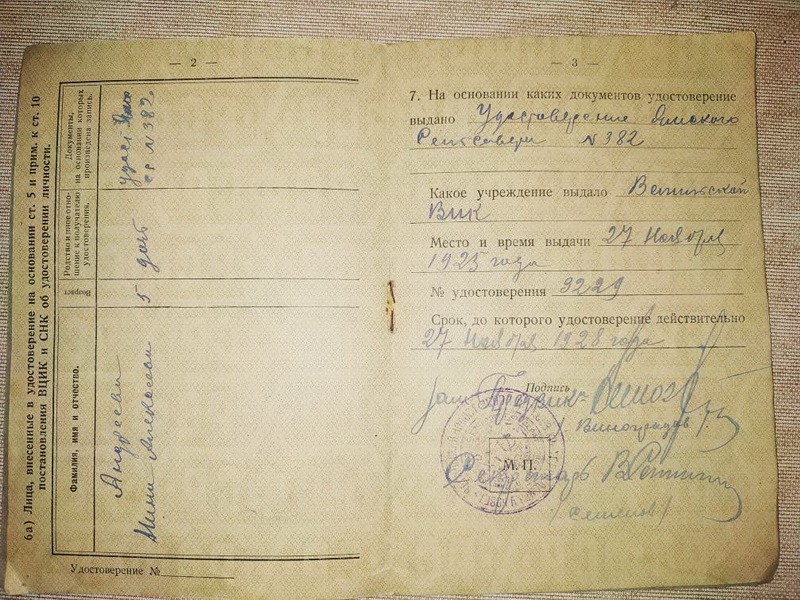 — 2 —
6а) Лица, внесенные в удостоверение на основании ст. 5 и прим. к ст. 10
постановления ВЦИК и СНК об удостоверении личности.
Фамилия, имя и отчество.
Возраст
Родство и иное отно-
шение к получателю
удостоверения.
Документы,
на основании которых
произведена запись.
Андреева
Нина Алексеев
5
дочь
удост
СР N 382
Удостоверение №
— 3 —
7. На основании каких документов удостоверение
выдано Удостоверение Ямского
Сельсовета N 382
Какое учреждение выдало
Вик
Место и время выдачи 27 Ноября
1925 года
№ удостоверения 9229
Срок, до которого удостоверение действительно
27 Ноября 1928 года
Подпись
Зам. Пред Вик
/Виноградов/
М. П.
Секретарь
/Семенов/